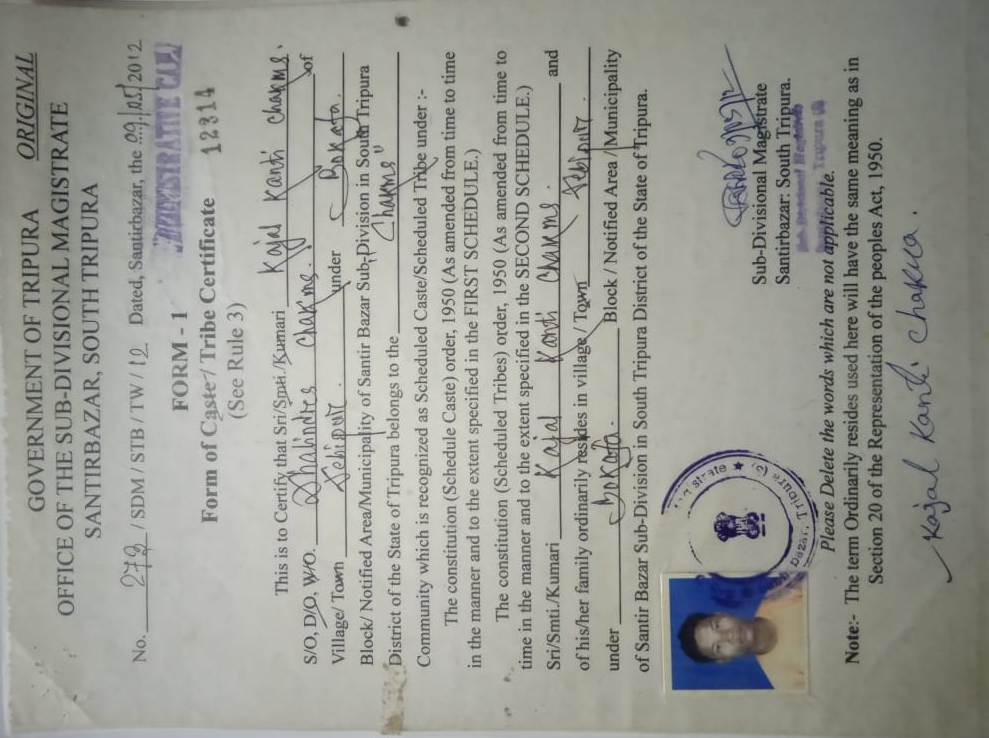 GOVERNMENT OF TRIPURA ORIGINAL
OFFICE OF THE SUB-DIVISIONAL MAGISTRATE
SANTIRBAZAR, SOUTH TRIPURA
No. 279 / SDM / STB / TW / 12 Dated, Santirbazar, the 09/05/2012
FORM - 1
Form of Caste / Tribe Certificate 12314
(See Rule 3)
This is to Certify that Sri/Smti./Kumari Kajal Kanti Chakma.
S/O, D/O, W/O. Chakma. of
Village/ Town Debipur. under Bokafa.
Block/ Notified Area/Municipality of Santir Bazar Sub-Division in South Tripura
District of the State of Tripura belongs to the Chakma"
Community which is recognized as Scheduled Caste/Scheduled Tribe under :-
The constitution (Schedule Caste) order, 1950 (As amended from time to time
in the manner and to the extent specified in the FIRST SCHEDULE.)
The constitution (Scheduled Tribes) order, 1950 (As amended from time to
time in the manner and to the extent specified in the SECOND SCHEDULE.)
Sri/Smti./Kumari Kajal Kanti Chakma. and
of his/her family ordinarily resides in village / Town Debipur.
under Bokafa. Block / Notified Area / Municipality
of Santir Bazar Sub-Division in South Tripura District of the State of Tripura.
Sub-Divisional Magistrate
Santirbazar: South Tripura.
Please Delete the words which are not applicable.
Note:- The term Ordinarily resides used here will have the same meaning as in
Section 20 of the Representation of the peoples Act, 1950.
Kajal Kanti Chakma.